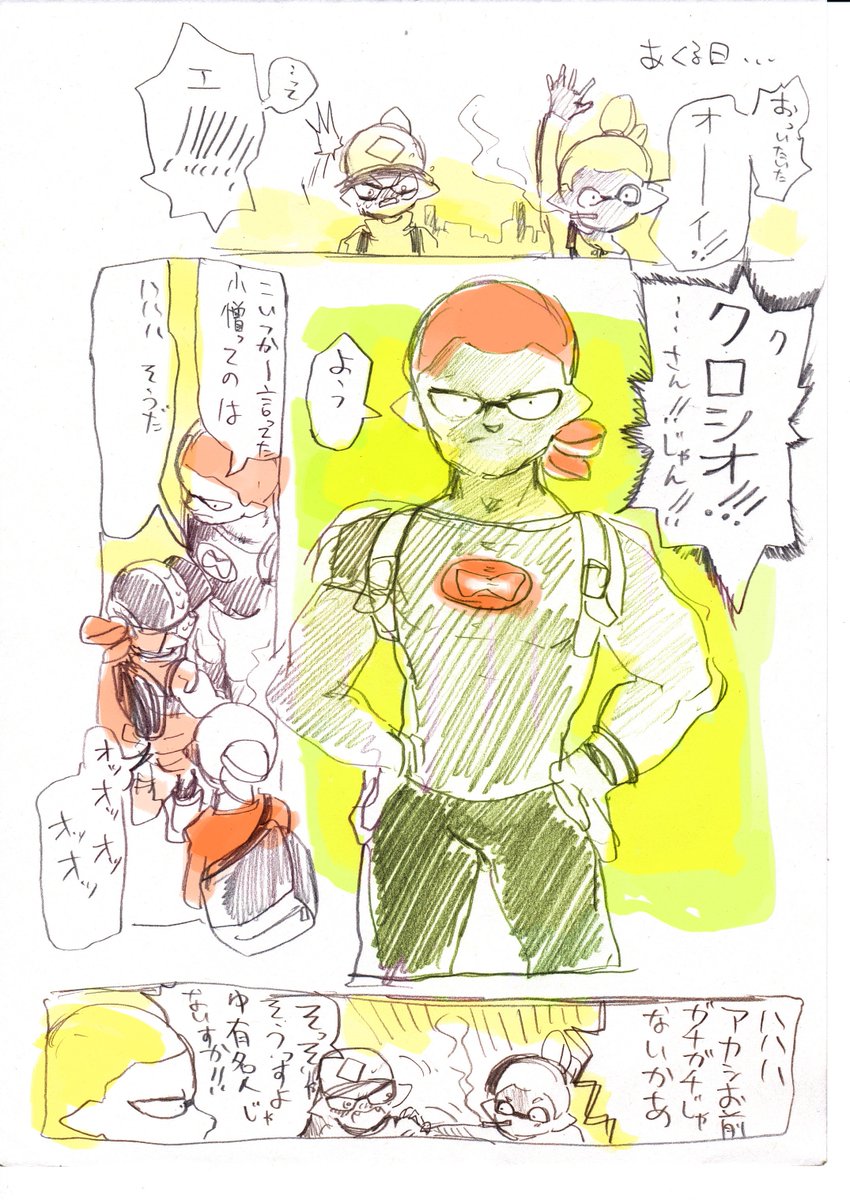 あくる日...
おっいたいた
オーイ!!
...って
エ
ククロシオ!!!...
...さん!!じゃん!!
よぅ
こいつかー言ってた
小僧ってのは
ハハハ そうだ
オッオッオッ
オッオッ
ハハハ
アカシお前
ガチガチじゃ
ないかあ
そっそりゃ
そうっすよ
中有名人じゃ
ないすか!!